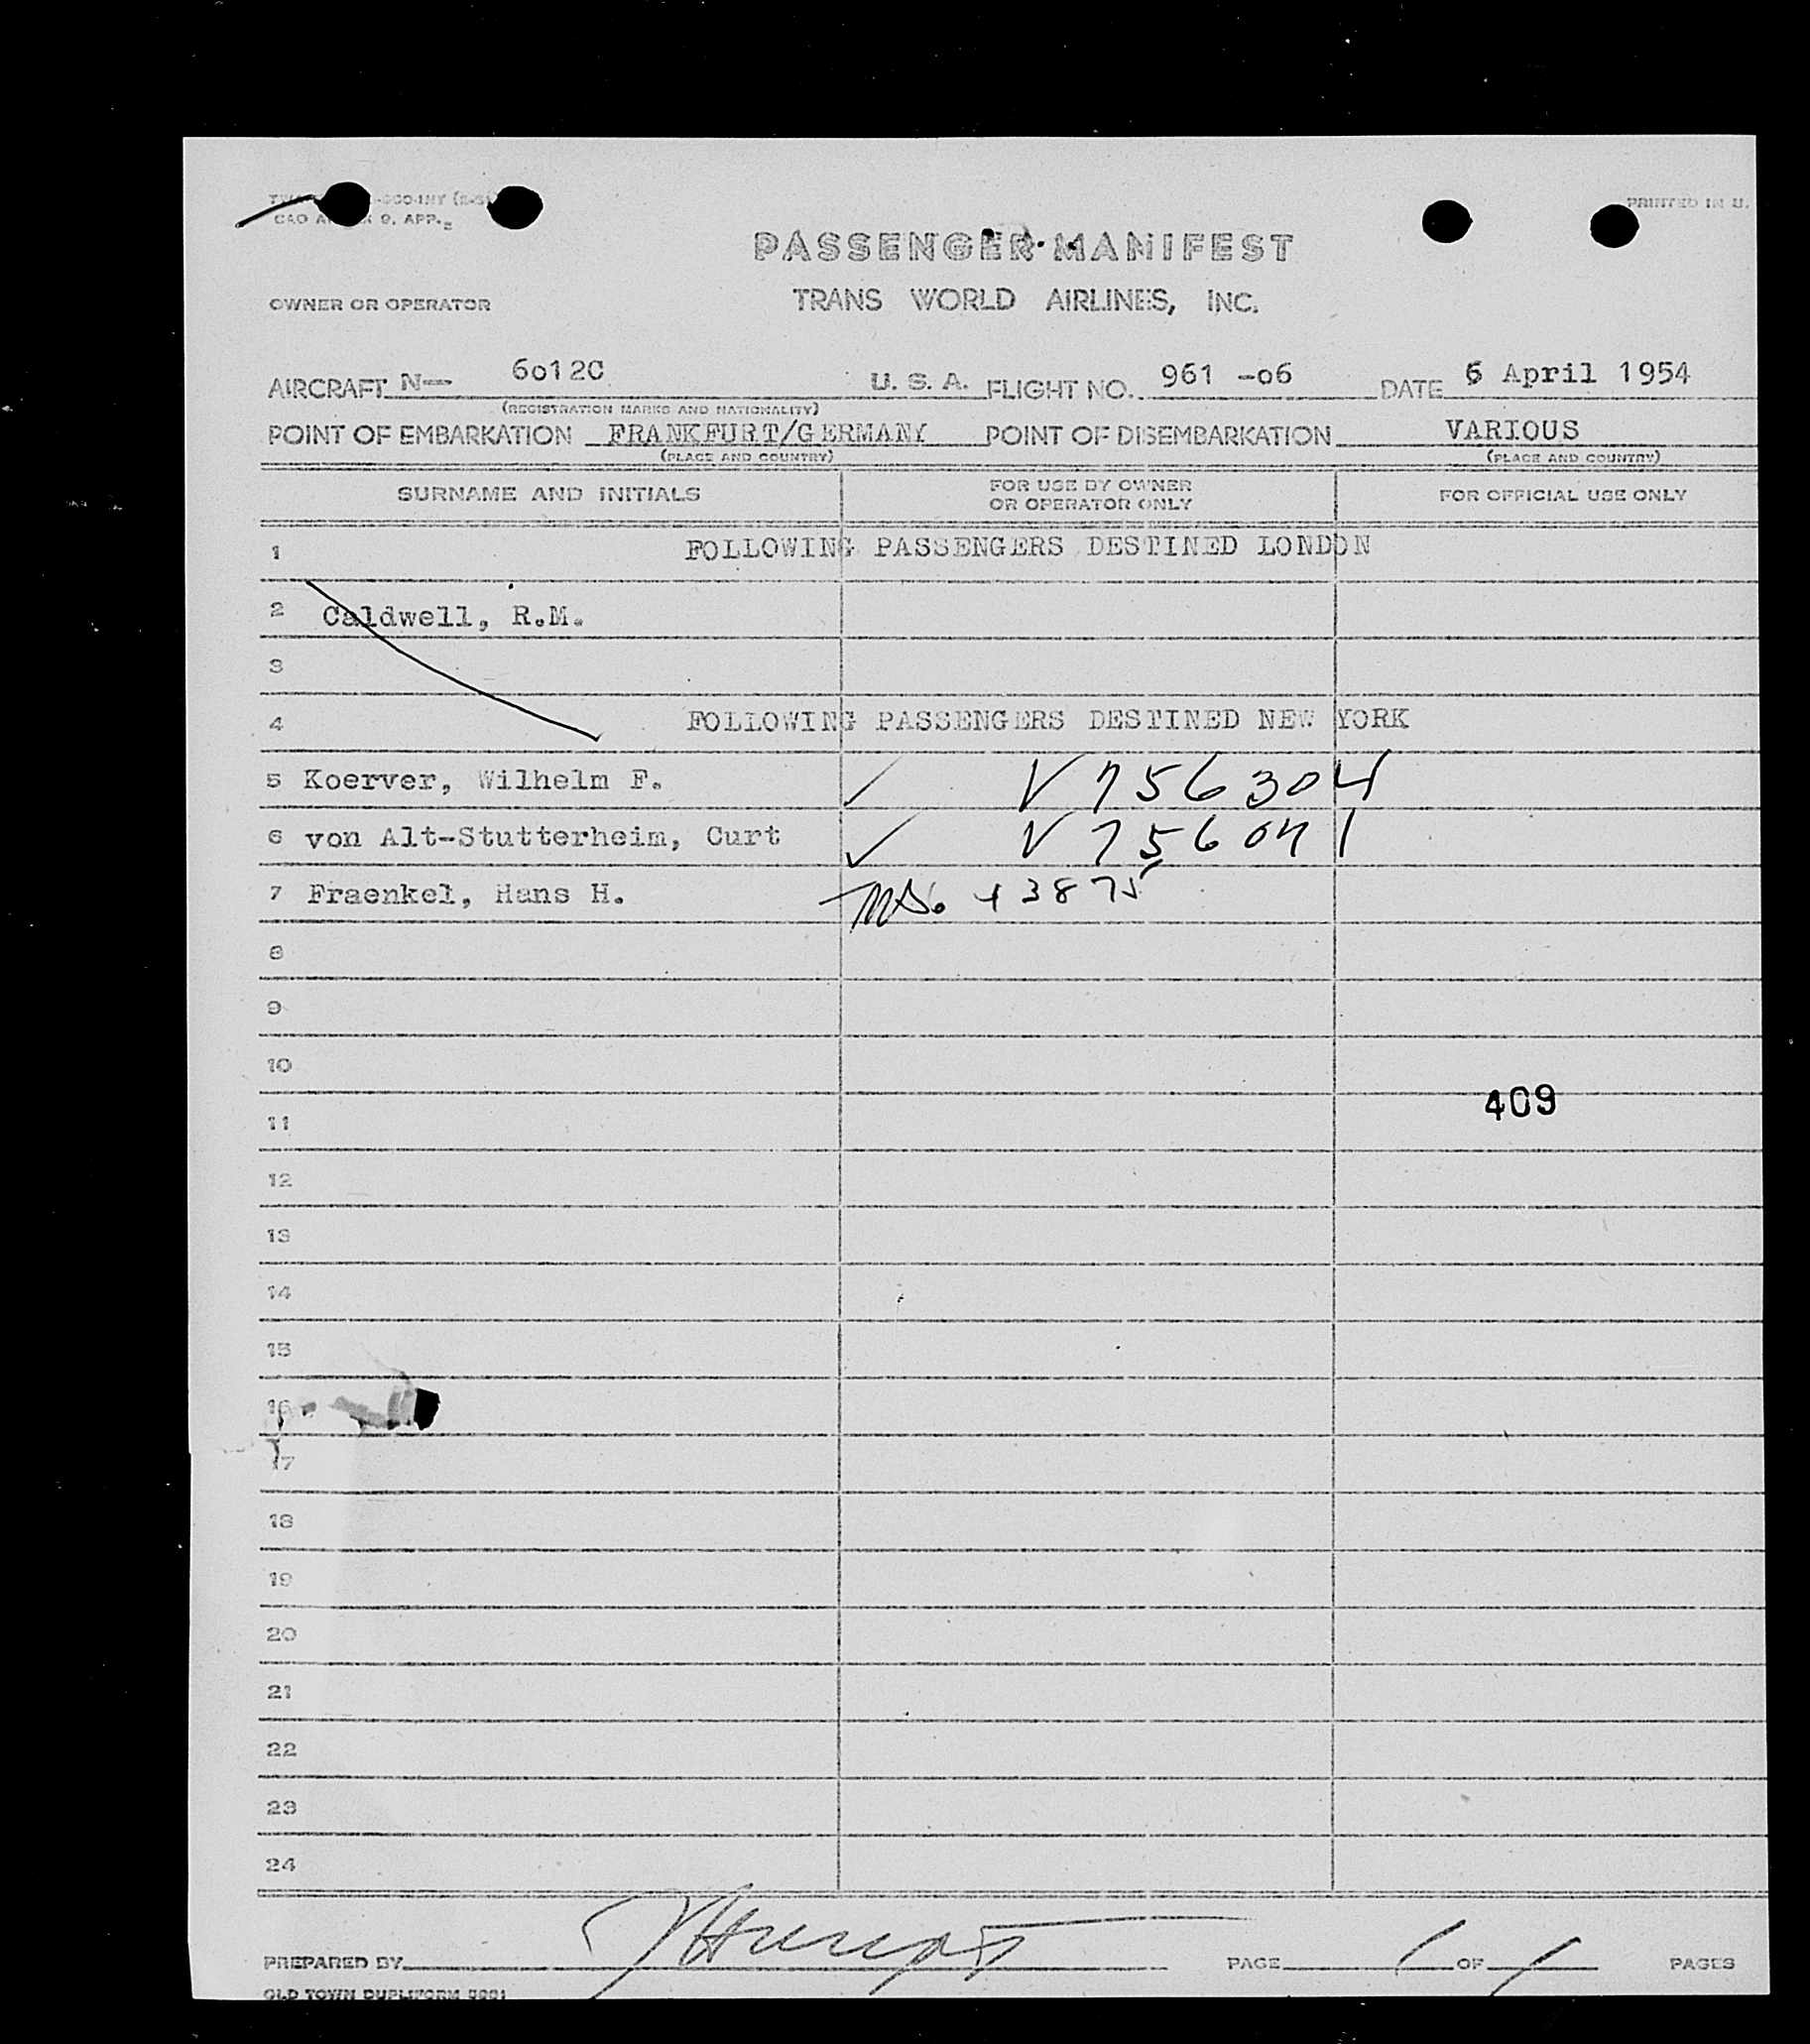 CAO A 9. APP.
PRINTED IN U.
PASSENGER MANIFEST
OWNER OR OPERATOR
TRANS WORLD AIRLINES, INC.
AIRCRAFT N— 6012C U. S. A. FLIGHT NO. 961 -06 DATE 6 April 1954
(REGISTRATION MARKS AND NATIONALITY)
POINT OF EMBARKATION FRANKFURT/GERMANY POINT OF DISEMBARKATION VARIOUS
(PLACE AND COUNTRY) (PLACE AND COUNTRY)
SURNAME AND INITIALS FOR USE BY OWNER OR OPERATOR ONLY FOR OFFICIAL USE ONLY
1 FOLLOWING PASSENGERS DESTINED LONDON
2 Caldwell, R.M.
3
4 FOLLOWING PASSENGERS DESTINED NEW YORK
5 Koerver, Wilhelm F. ✓ V 756304
6 von Alt-Stutterheim, Curt ✓ V 756041
7 Fraenkel, Hans H. 43875
8
9
10
409
11
12
13
14
15
16
17
18
19
20
21
22
23
24
PREPARED BY PAGE 1 OF 1 PAGES
OLD TOWN DUPLIFORM